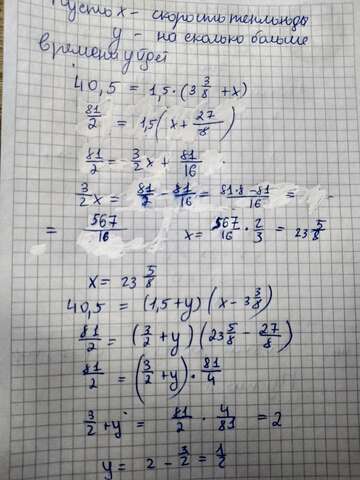 Пусть x - скорость теплохода
y - на сколько больше
времени уйдет
40,5 = 1,5 · (3 3/8 + x)
81/2 = 1,5 (x + 27/8)
81/2 = 3/2 x + 81/16
3/2 x = 81/2 - 81/16 = (81·8-81)/16 =
= 567/16   x = 567/16 · 2/3 = 23 5/8
x = 23 5/8
40,5 = (1,5+y) (x - 3 3/8)
81/2 = (3/2 + y) (23 5/8 - 27/8)
81/2 = (3/2 + y) · 81/4
3/2 + y = 81/2 · 4/81 = 2
y = 2 - 3/2 = 1/2